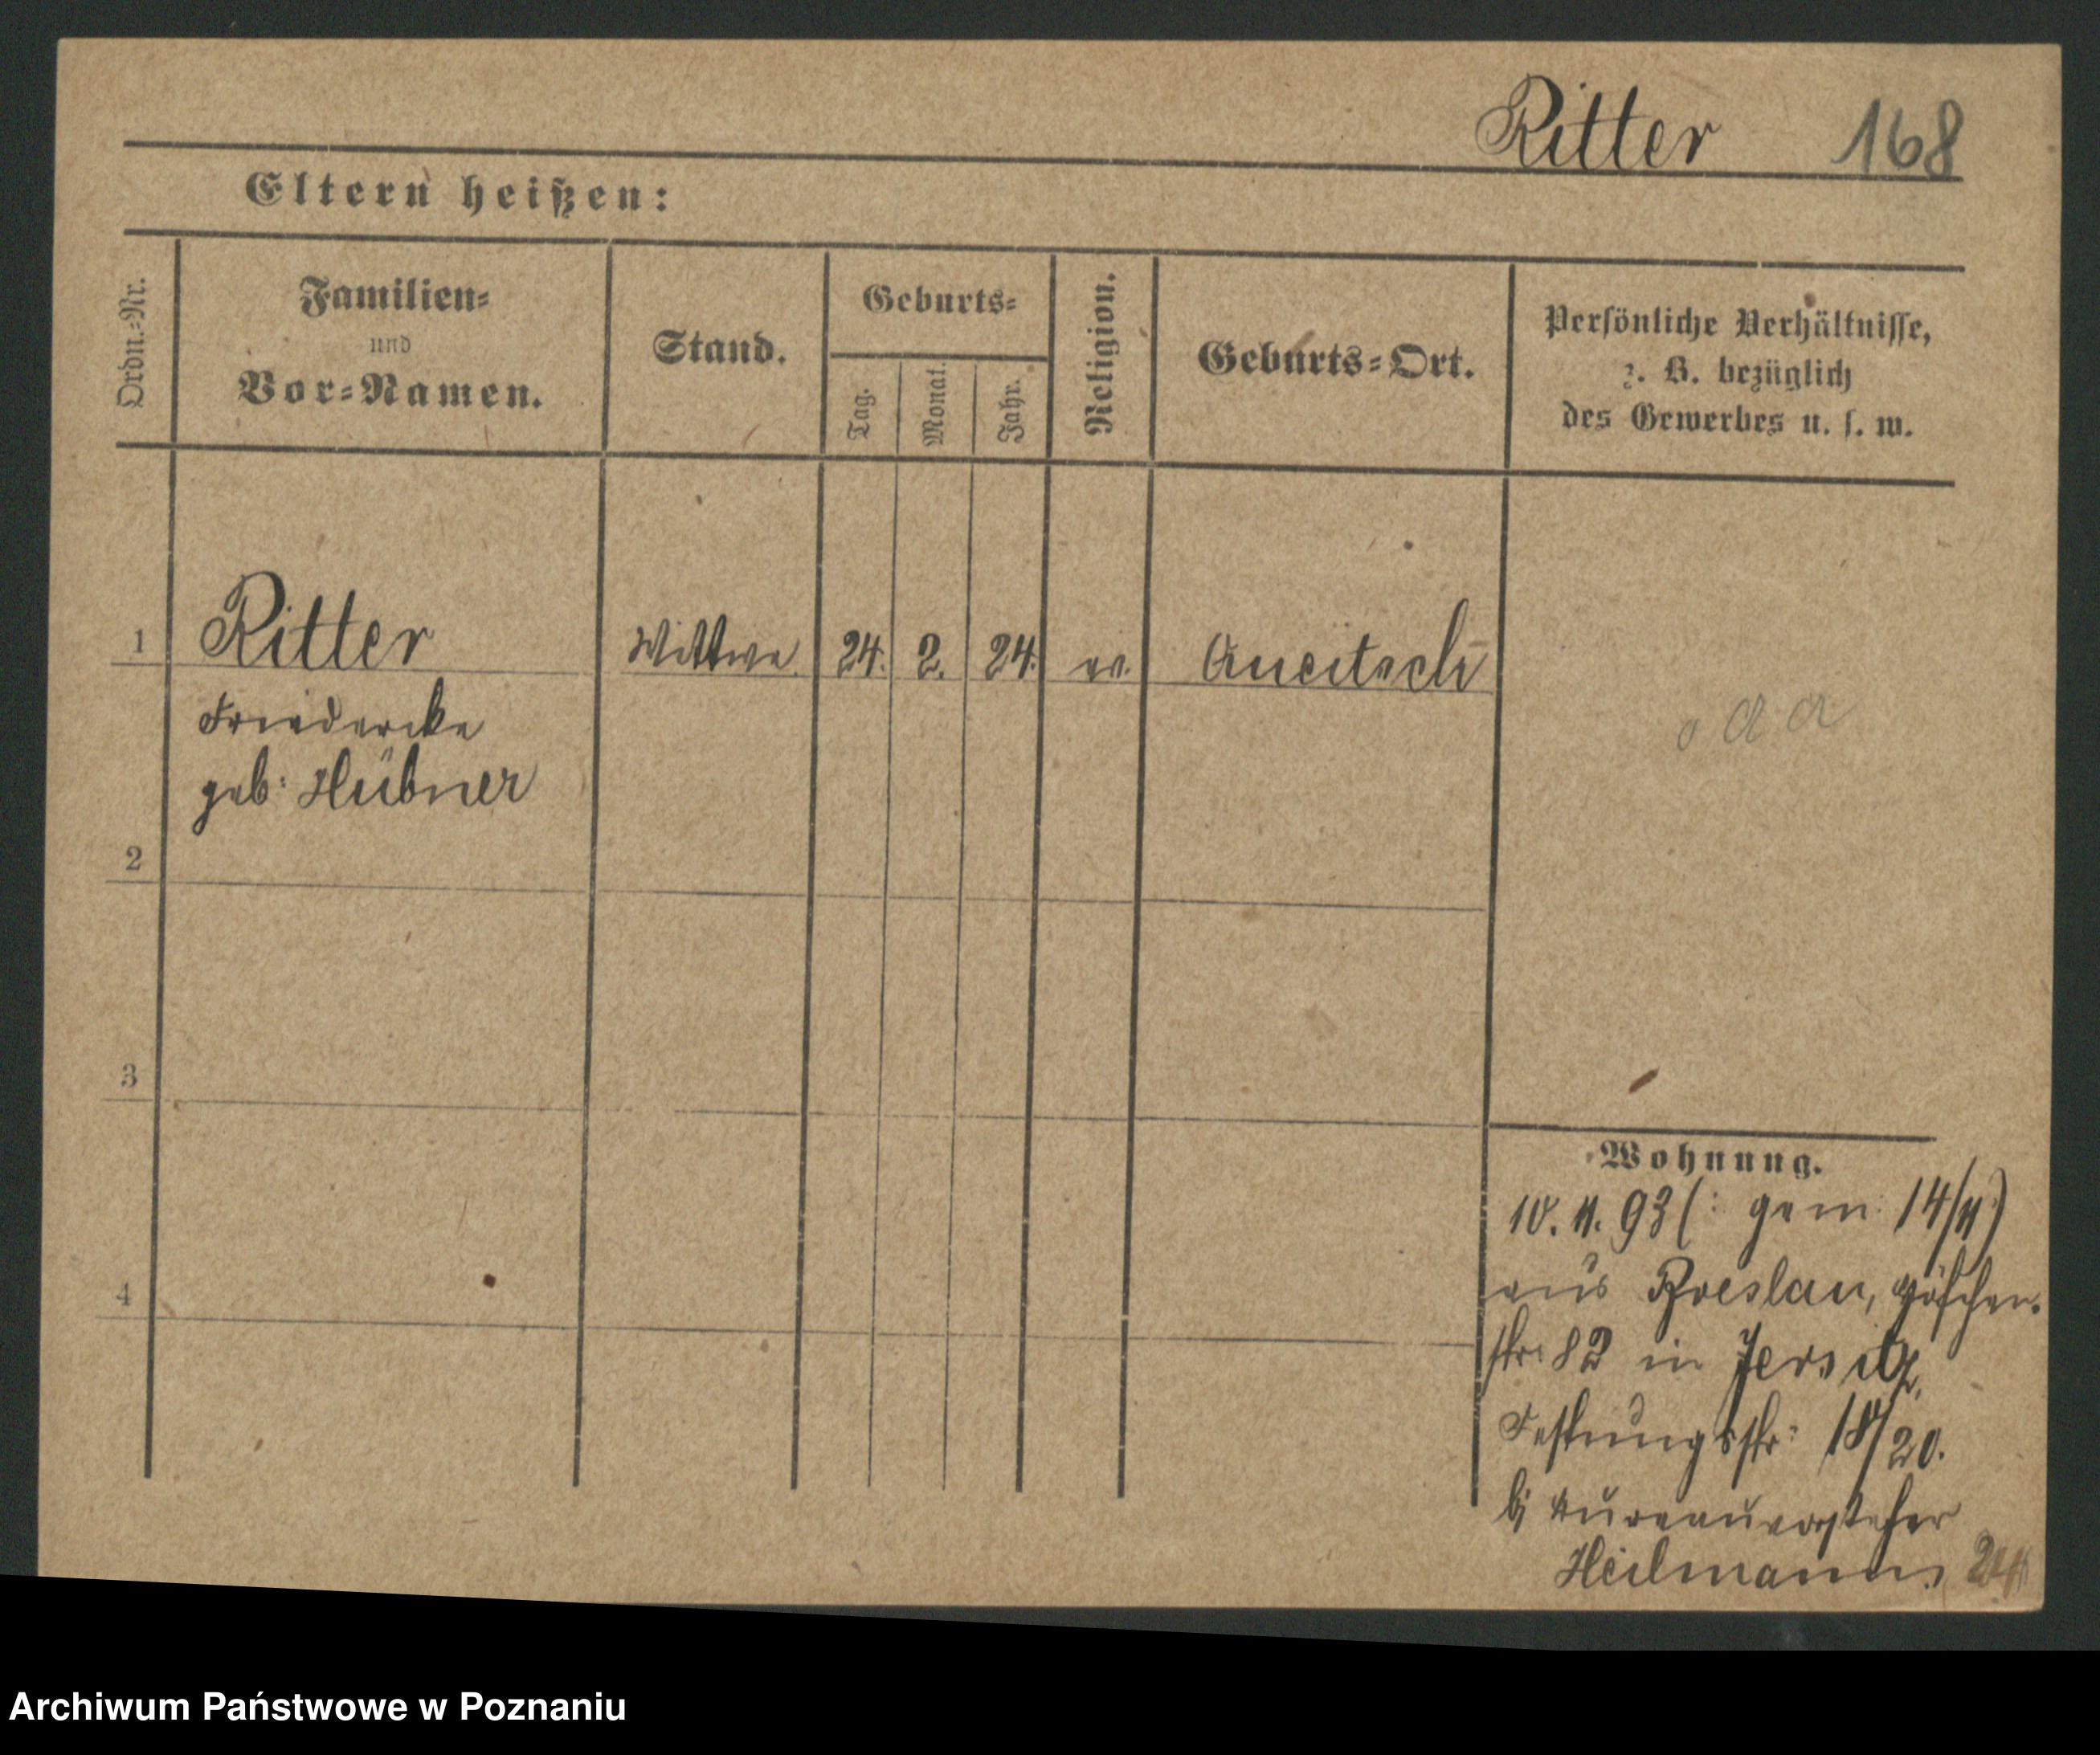 Ritter 168
Eltern heißen:
Ordn.=Nr.
Familien=
und
Vor=Namen.
Stand.
Geburts=
Tag.
Monat.
Jahr.
Religion.
Geburts=Ort.
Persönliche Verhältnisse,
z. B. bezüglich
des Gewerbes u. s. w.
1 Ritter Wittwe 24. 2. 24. ev.
Friedericke
geb: Hübner
2
3
4
Wohnung.
10. 11. 93 (: gem: 14/11)
aus Breslau,
str: 82 in Jersitz,
Festungsstr: 18/20.
bj Bureauvorsteher
Heilmann.
Archiwum Państwowe w Poznaniu